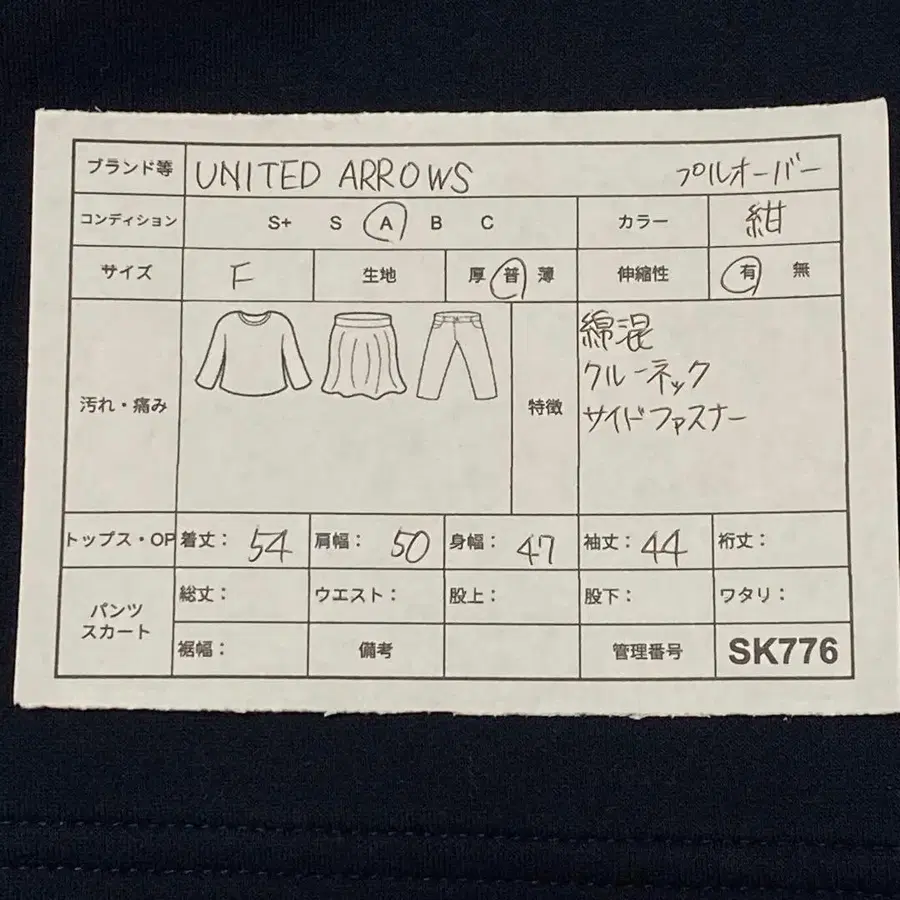 ブランド等 UNITED ARROWS プルオーバー
コンディション S+ S A B C カラー 紺
サイズ F 生地 厚 普 薄 伸縮性 有 無
汚れ・痛み 特徴 綿混
クルーネック
サイドファスナー
トップス・OP 着丈： 54 肩幅： 50 身幅： 47 袖丈： 44 裄丈：
パンツ
スカート
総丈： ウエスト： 股上： 股下： ワタリ：
裾幅： 備考 管理番号 SK776